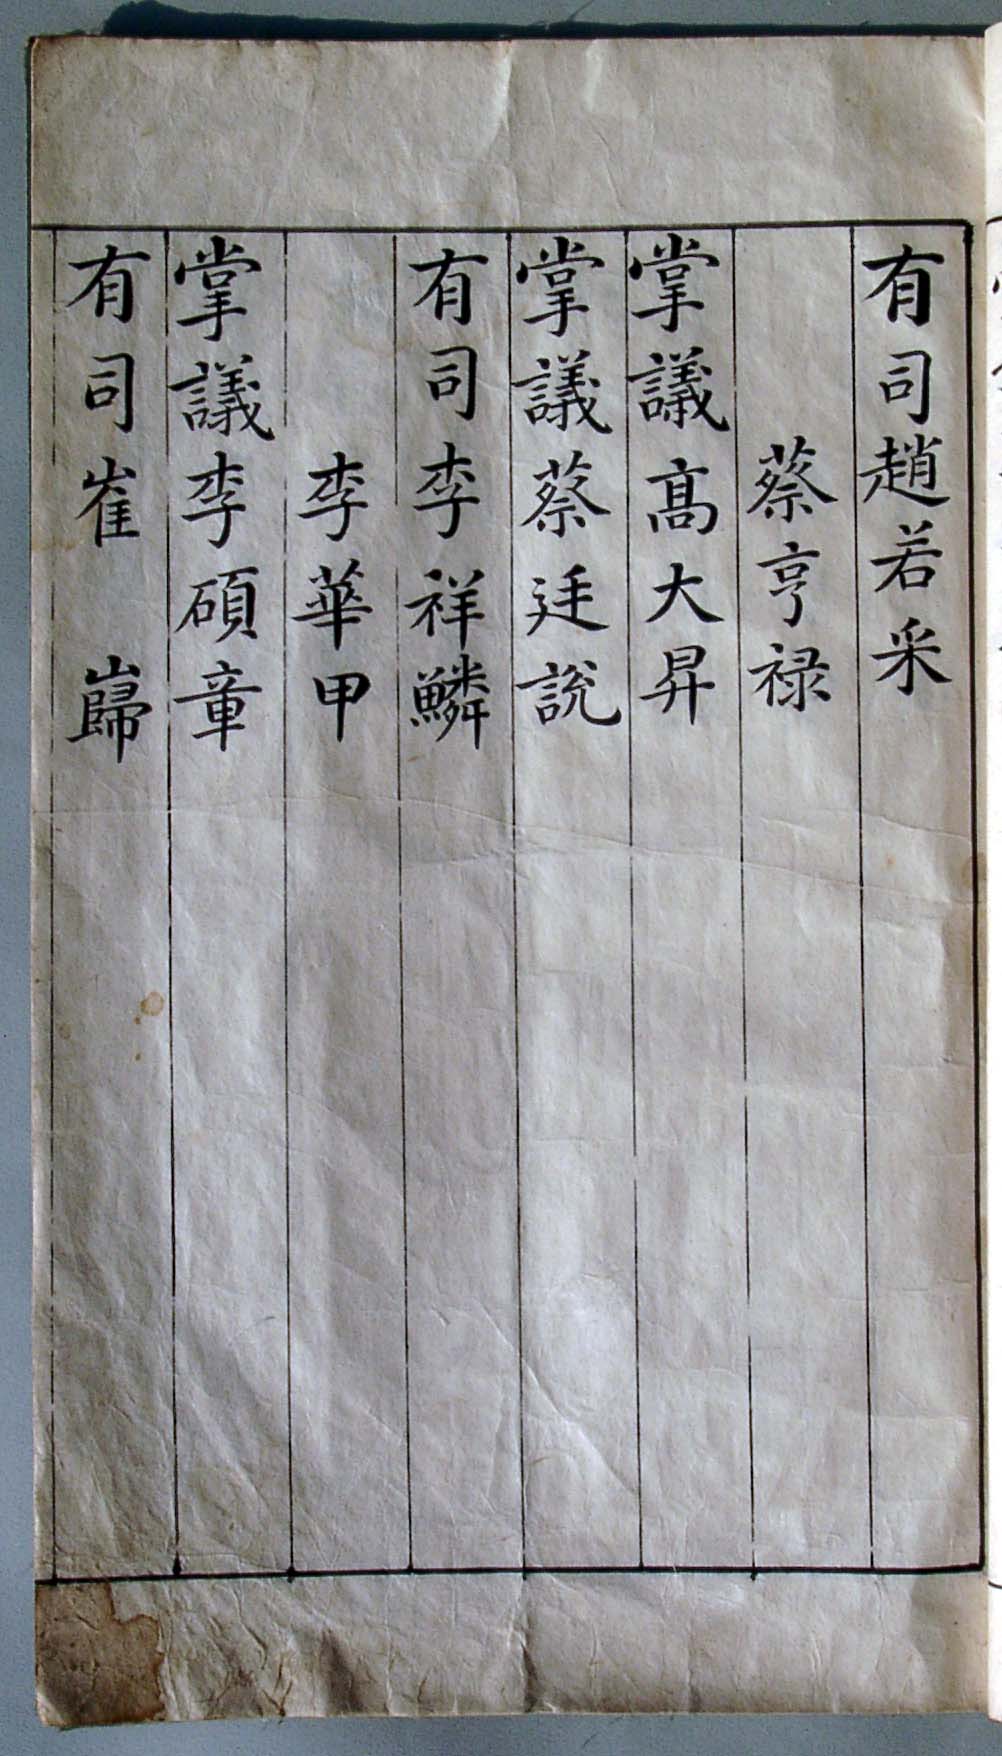 有司趙若采
蔡亨禄
掌議髙大昇
掌議蔡廷說
有司李祥鱗
李華甲
掌議李碩章
有司崔巋